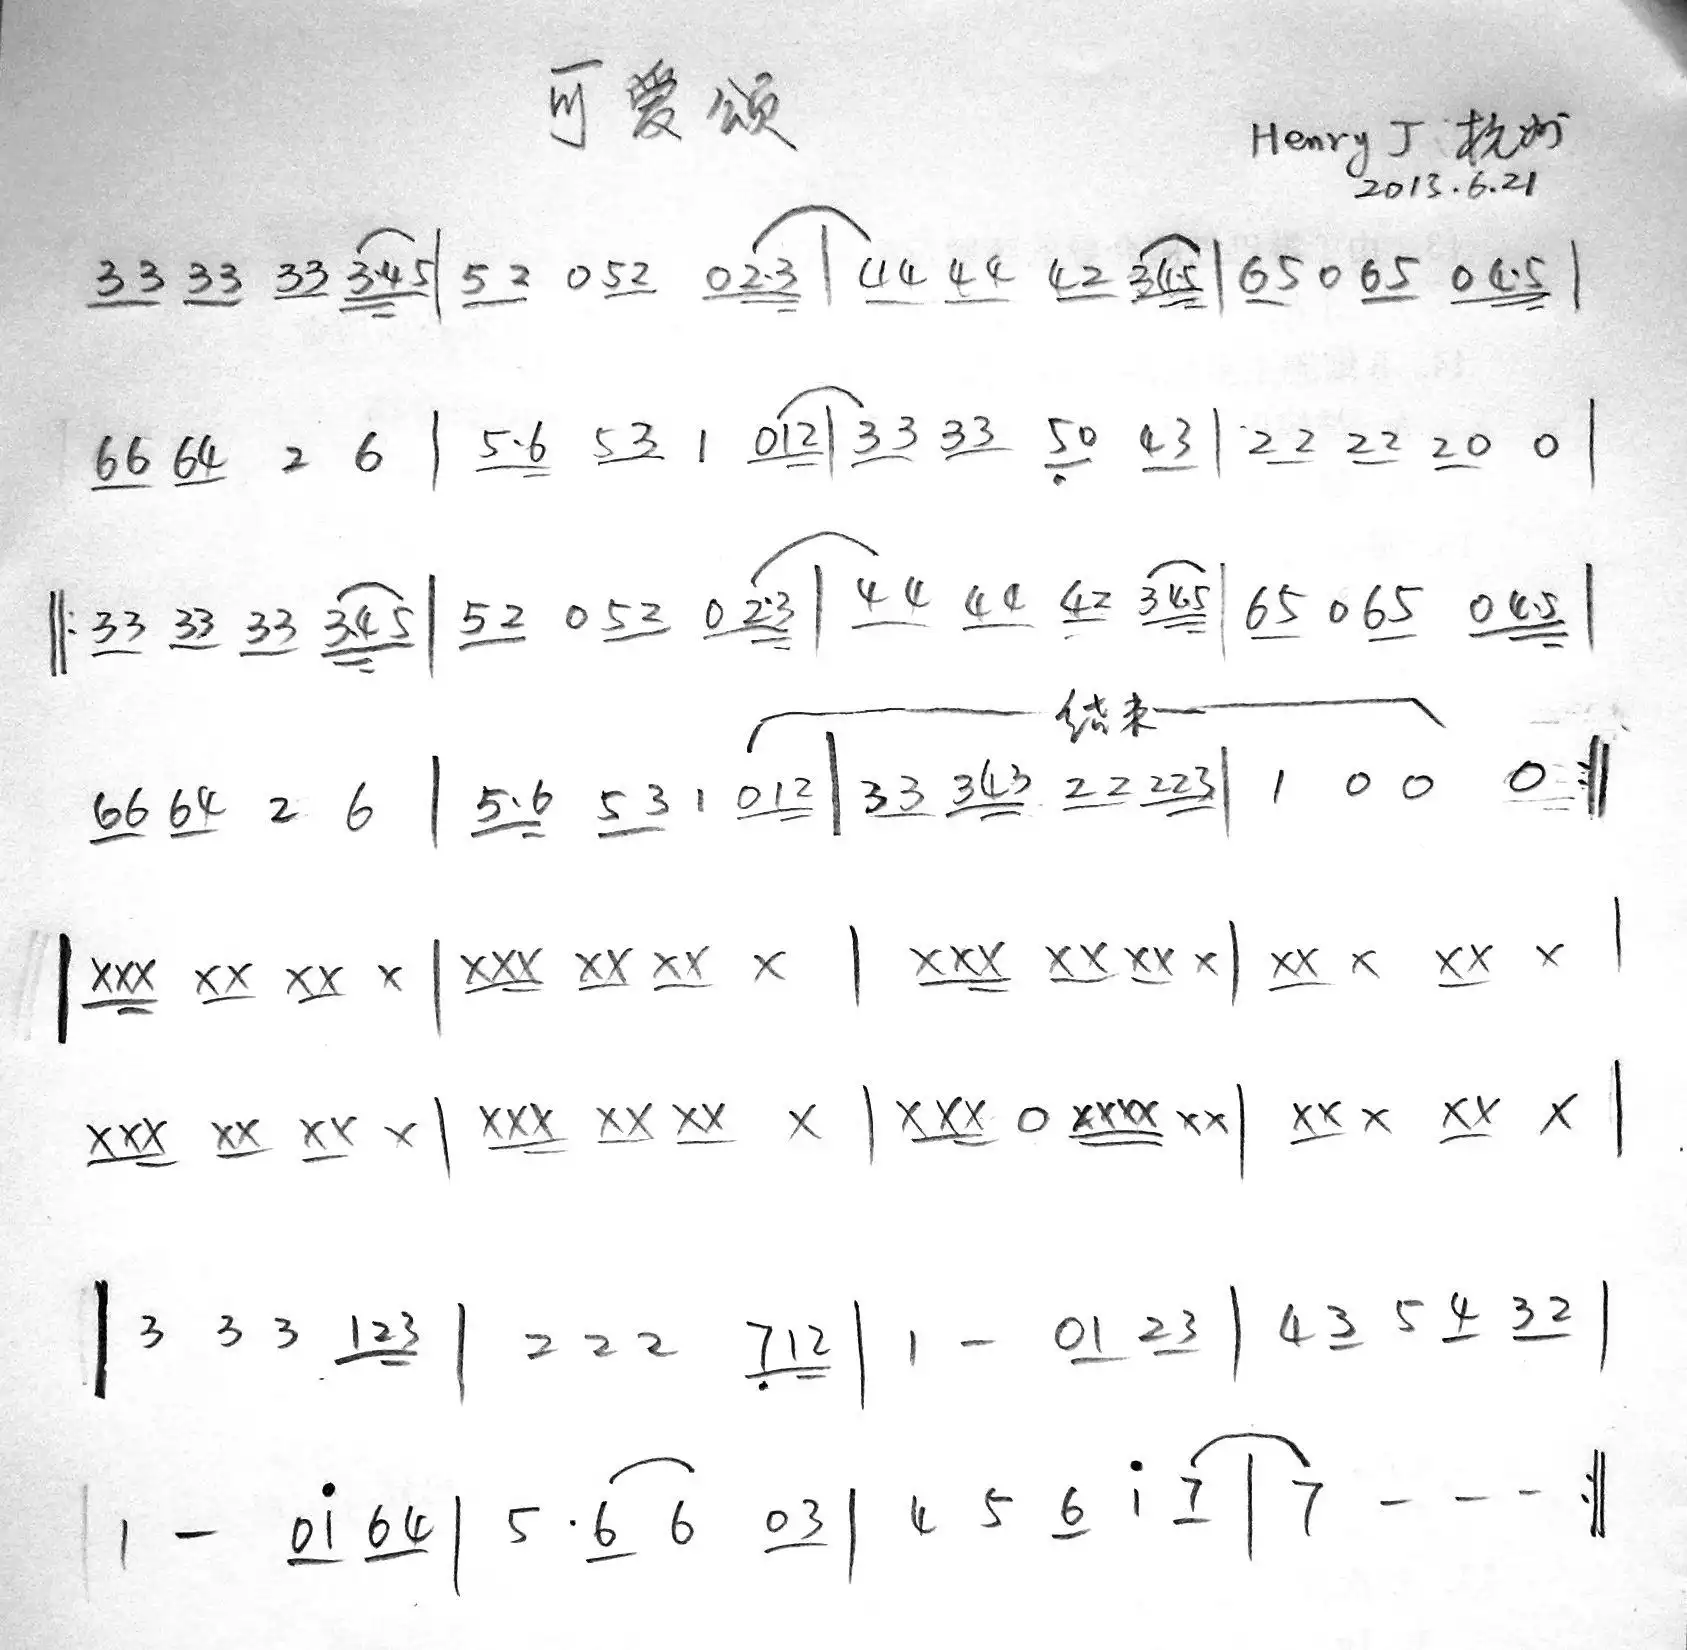 可爱颂
Henry J 杭州
2013.6.21
33 33 33 3·45 | 52 0 52 02·3 | 44 44 42 34·5 | 65 0 65 04·5 |
66 64 2 6 | 5·6 53 1 012 | 33 33 50 43 | 22 22 20 0 |
‖: 33 33 33 3·45 | 52 0 52 02·3 | 44 44 42 34·5 | 65 0 65 04·5 |
结束
66 64 2 6 | 5·6 53 1 012 | 33 343 22 223 | 1 0 0 0 :‖
| XXX XX XX X | XXX XX XX X | XXX XX XX X | XX X XX X |
XXX XX XX X | XXX XX XX X | XXX 0 XXXX XX | XX X XX X |
| 3 3 3 123 | 2 2 2 7̣12 | 1 - 01 23 | 4 3 5 4 32 |
| 1 - 0i 64 | 5 · 6 6 03 | 4 5 6 i 7 | 7 - - - :‖